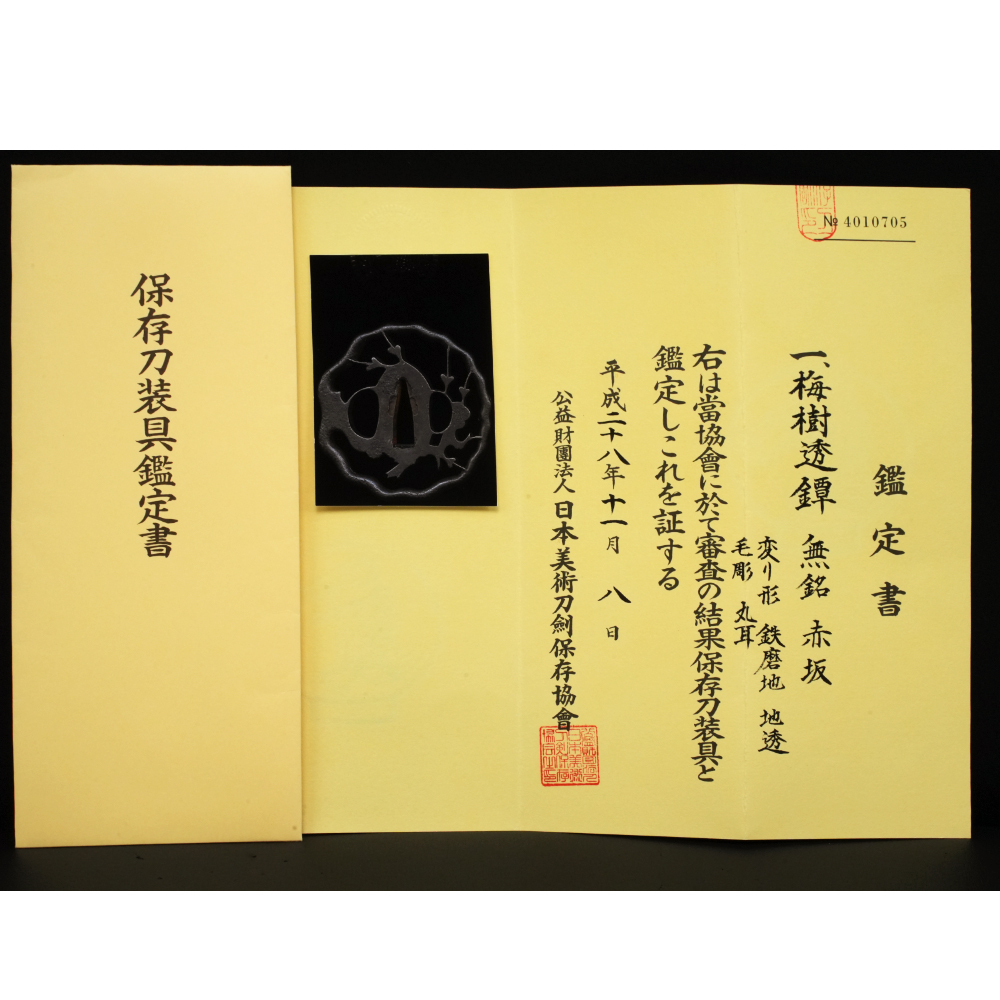 保存刀装具鑑定書
№ 4010705
鑑定書
一、梅樹透鐔 無銘 赤坂
変り形 鉄磨地 地透
毛彫 丸耳
右は當協會に於て審査の結果保存刀装具と
鑑定しこれを証する
平成二十八年十一月 八日
公益財團法人日本美術刀劍保存協會